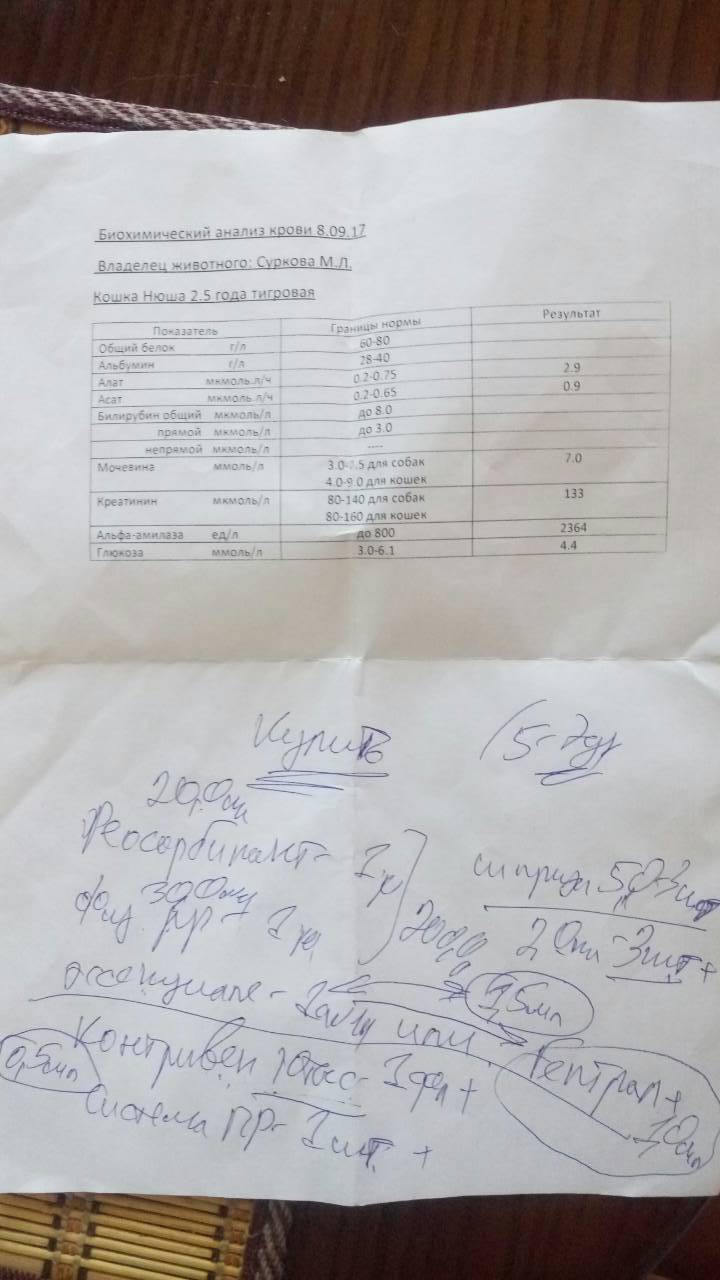 Биохимический анализ крови 8.09.17
Владелец животного: Суркова М.Л.
Кошка Нюша 2.5 года тигровая
Показатель Границы нормы Результат
Общий белок г/л 60-80
Альбумин г/л 28-40
Алат мкмоль.л/ч 0.2-0.75 2.9
Асат мкмоль.л/ч 0.2-0.65 0.9
Билирубин общий мкмоль/л до 8.0
прямой мкмоль/л до 3.0
непрямой мкмоль/л ----
Мочевина ммоль/л 3.0-7.5 для собак 7.0
4.0-9.0 для кошек
Креатинин мкмоль/л 80-140 для собак 133
80-160 для кошек
Альфа-амилаза ед/л до 800 2364
Глюкоза ммоль/л 3.0-6.1 4.4
Купить (5-7
Реосорбилакт-
физ. рр-
шприцы 5,0-3шт
2,0мл-3шт+
эссенциале- или
Контривен 1фл+
Гептрал+
0,5мл
Система ПР-1шт. +